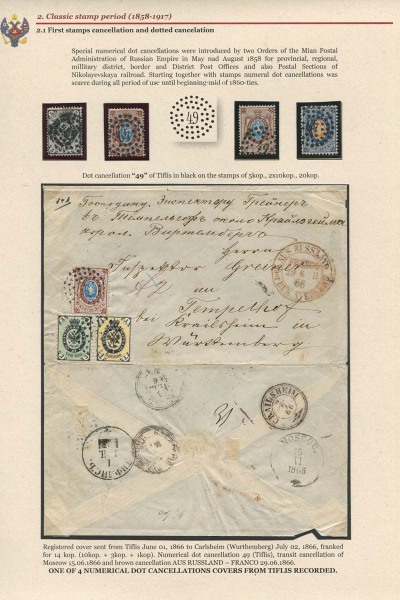 2. Classic stamp period (1858-1917)
2.1 First stamps cancellation and dotted cancelation
Special numeral dot cancellations were introduced by two Orders of the Mian Postal
Administration of Russian Empire in May nad August 1858 for provincial, regional,
military district, border and District Post Offices and also Postal Sections of
Nikolayevskaya railroad. Starting together with stamps numeral dot cancellations was
scarce during all period of use until beginning-mid of 1860-ties.
49
Dot cancellation "49" of Tiflis in black on the stamps of 5kop., 2x10kop., 20kop.
Господину Инспектору Грейнеръ
въ Темпельгофъ около Крайльсгейма
корол. Виртембергъ
Herrn
Inspektor Greiner
in
Tempelhof
bei Crailsheim in
Württemberg
RUSSLAND
66
CRAILSHEIM
MOSCOU
1866
ТИФЛИСЪ
Registered cover sent from Tiflis June 01, 1866 to Carlsheim (Wurthemberg) July 02, 1866, franked
for 14 kop. (10kop. + 3kop. + 1kop). Numerical dot cancellation 49 (Tiflis), transit cancellation of
Moscow 15.06.1866 and brown cancellation AUS RUSSLAND – FRANCO 29.06.1866.
ONE OF 4 NUMERICAL DOT CANCELLATIONS COVERS FROM TIFLIS RECORDED.